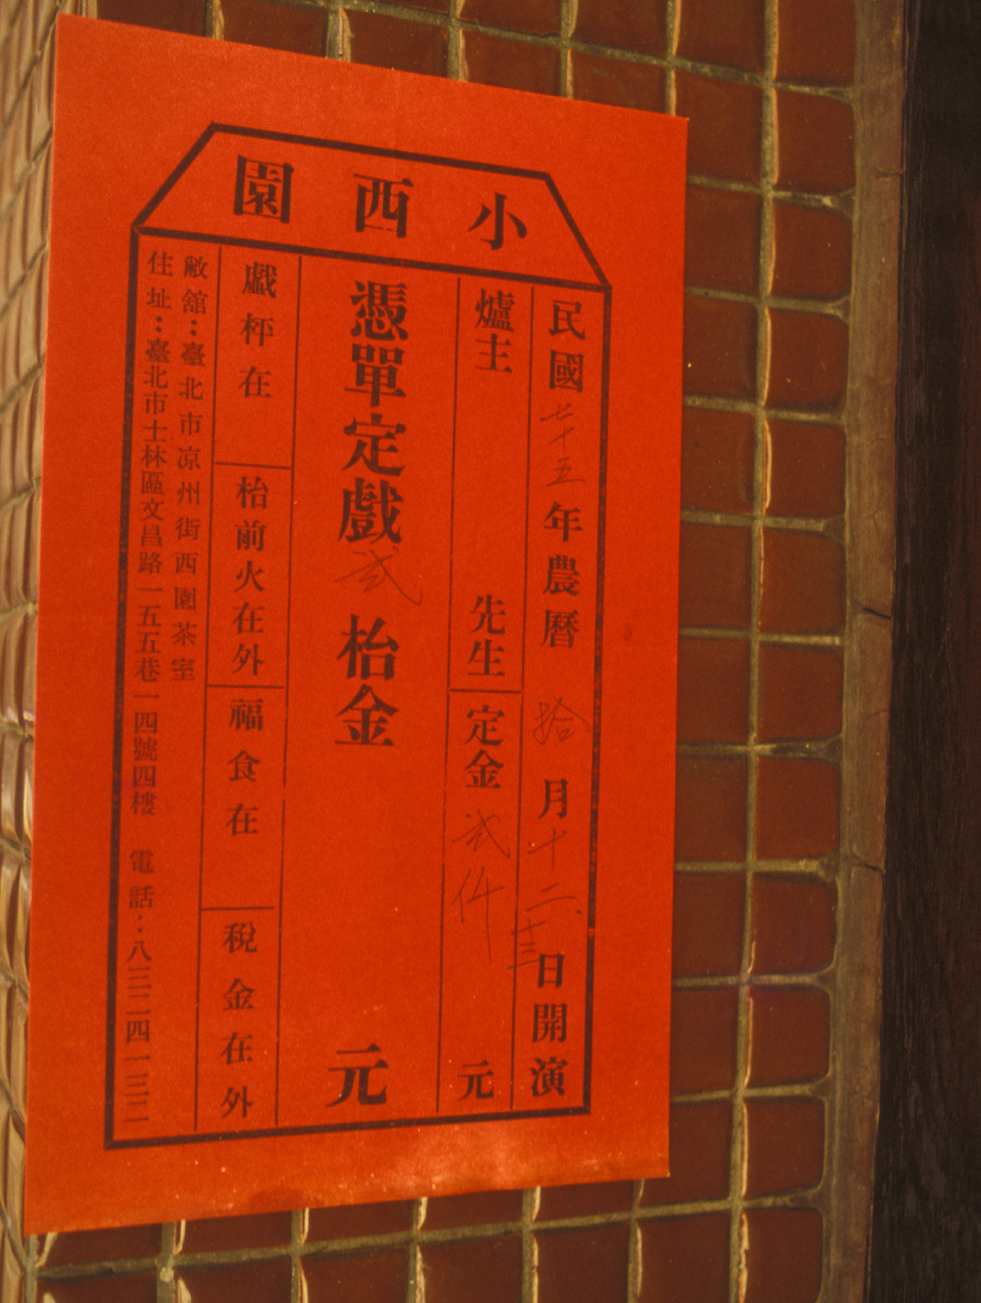 小西園
民國七十五年農曆 拾月十二、十三日開演
爐主 先生
定金弍仟 元
憑單定戲弍枱金 元
戲枰在
枱前火在外
福食在
稅金在外
敝舘：臺北市凉州街西園茶室
住址：臺北市士林區文昌路一五五巷一四號四樓 電話：八三二四一三二